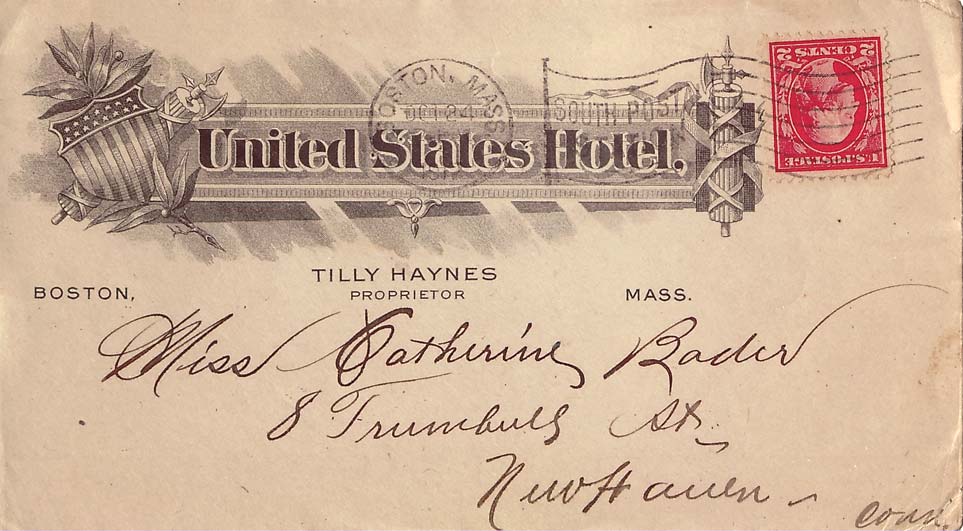 BOSTON, MASS.
OCT 24
SOUTH POSTAL
2 CENTS 2
U.S. POSTAGE
United States Hotel.
TILLY HAYNES
PROPRIETOR
BOSTON, MASS.
Miss Catherine Bader
8 Trumbull St.
New Haven
Conn.